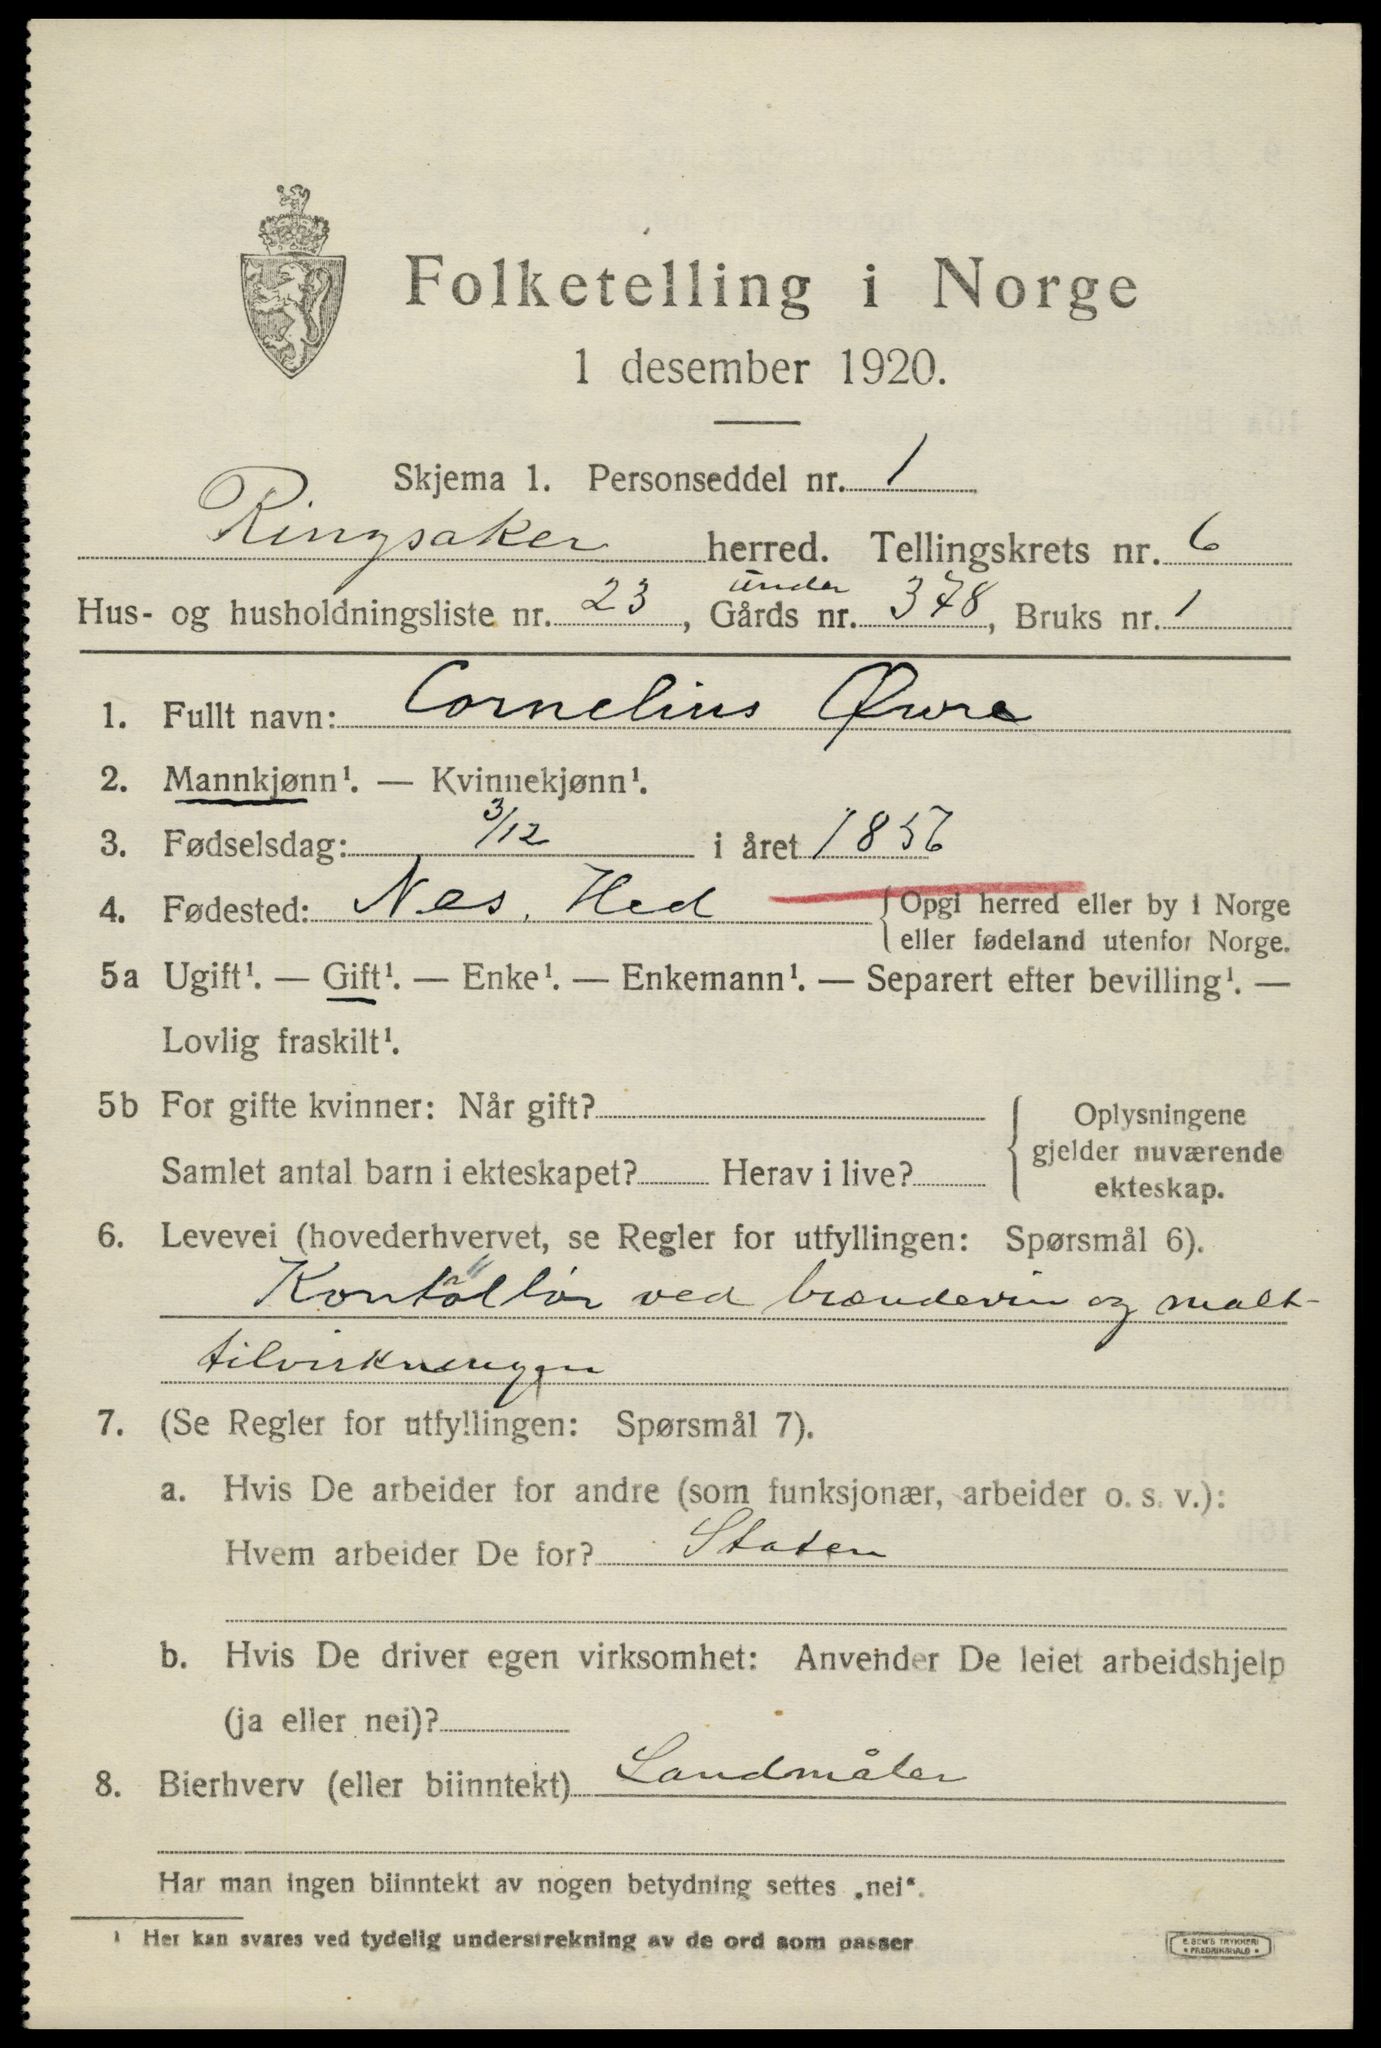 Folketelling i Norge
1 desember 1920.
Skjema 1. Personseddel nr. 1
Ringsaker herred. Tellingskrets nr. 6
under
Hus- og husholdningsliste nr. 23, Gårds nr. 378, Bruks nr. 1
1. Fullt navn: Cornelius Øvre
2. Mannkjønn¹. — Kvinnekjønn¹.
3. Fødselsdag: 3/12 i året 1856
4. Fødested: Nes, Hed { Opgi herred eller by i Norge
eller fødeland utenfor Norge.
5a Ugift¹. — Gift¹. — Enke¹. — Enkemann¹. — Separert efter bevilling¹. —
Lovlig fraskilt¹.
5b For gifte kvinner: Når gift? { Oplysningene
gjelder nuværende
Samlet antal barn i ekteskapet? Herav i live?
ekteskap.
6. Levevei (hovederhvervet, se Regler for utfyllingen: Spørsmål 6).
Kontollør ved brændevin og malt-
tilvirkningen
7. (Se Regler for utfyllingen: Spørsmål 7).
a. Hvis De arbeider for andre (som funksjonær, arbeider o. s. v.):
Hvem arbeider De for? Staten
b. Hvis De driver egen virksomhet: Anvender De leiet arbeidshjelp
(ja eller nei)?
8. Bierhverv (eller biinntekt) Landmåler
Har man ingen biinntekt av nogen betydning settes „nei“.
¹ Her kan svares ved tydelig understrekning av de ord som passer
E. SEM'S TRYKKERI
• FREDRIKSHALD •